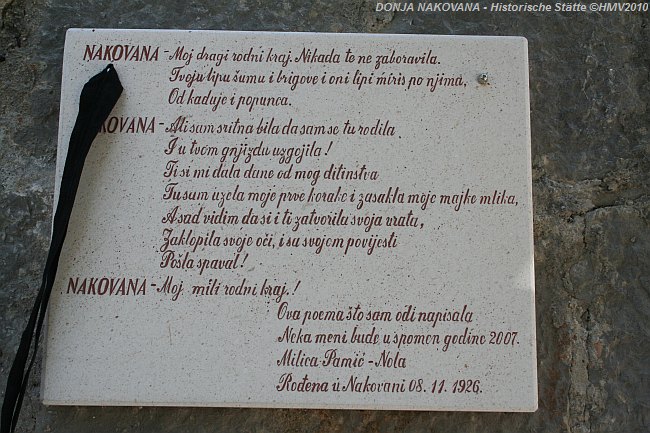 DONJA NAKOVANA - Historische Stätte ©HMV2010
NAKOVANA - Moj dragi rodni kraj. Nikada to ne zaboravila.
Tvoju lipu šumu i brigove i oni lipi miris po njima,
Od kaduje i popunca.
KOVANA - Ali sam sritna bila da sam se tu rodila
I u tvom gnjizdu uzgojila!
Ti si mi dala dane od mog ditinstva
Tu sam uzela moje prve korake i zasakla moje majke mlika,
A sad vidim da si i ti zatvorila svoja vrata,
Zaklopila svoje oči, i sa svojom povijesti
Pošla spavat!
NAKOVANA - Moj mili rodni kraj.!
Ova poema što sam odi napisala
Neka meni bude u spomen godine 2007.
Milica Pamić - Nola
Rođena u Nakovani 08. 11. 1926.